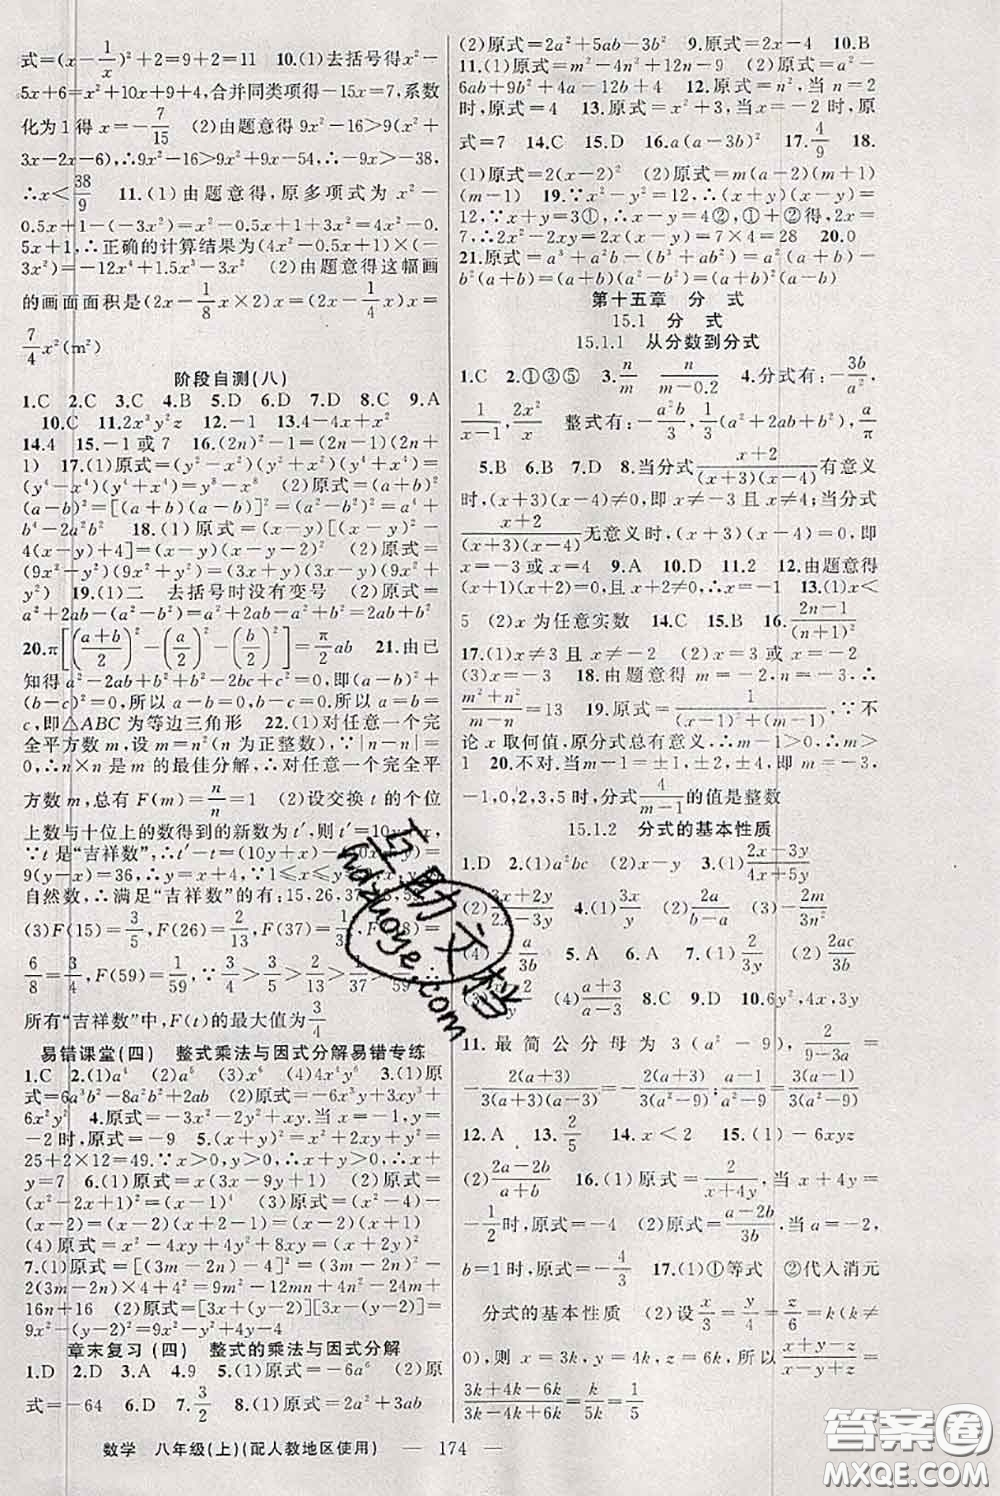 式=(x-1/x)²+2=9+2=11 10.(1)去括号得x²-
5x+6=x²+10x+9+4,合并同类项得-15x=7,系数
化为1得x=-7/15 (2)由题意得9x²-16>9(x²+
3x-2x-6),∴9x²-16>9x²+9x-54,∴-9x>-38,
∴x<38/9 11.(1)由题意得,原多项式为x²-
0.5x+1-(-3x²)=x²-0.5x+1+3x²=4x²-
0.5x+1,∴正确的计算结果为(4x²-0.5x+1)×(-
3x²)=-12x⁴+1.5x³-3x² (2)由题意得这幅画
的画面面积是(2x-1/8x×2)x=(2x-1/4x)x=
7/4x²(m²)
阶段自测(八)
1.C 2.C 3.C 4.B 5.D 6.D 7.D 8.C 9.A
10.C 11.2x³y²z 12.-1 13.4-4x+x²
14.4 15.-1或7 16.(2n)²-1=(2n-1)(2n+
1) 17.(1)原式=(y²-x²)(y²+x²)(x⁴+y⁴)=
(y⁴-x⁴)(y⁴+x⁴)=y⁸-x⁸ (2)原式=(a+b)²
(a-b)²=[(a+b)(a-b)]²=(a²-b²)²=a⁴+
b⁴-2a²b² 18.(1)原式=(x-y)[(x-y)²-
4(x-y)+4]=(x-y)(x-y-2)² (2)原式=
(9x²-y²)(9x²+y²)=(3x+y)(3x-y)(9x²+
y²) 19.(1)二 去括号时没有变号 (2)原式=
a²+2ab-(a²-b²)=a²+2ab-a²+b²=2ab+b²
20.π[((a+b)/2)²-(a/2)²-(b/2)²]=π/2ab 21.由已
知得a²-2ab+b²+b²-2bc+c²=0,即(a-b)²+
(b-c)²=0,所以a-b=0,b-c=0,所以a=b=c,
即△ABC为等边三角形 22.(1)对任意一个完
全平方数m,设m=n²(n为正整数),∵|n-n|=
0,∴n×n是m的最佳分解,∴对任意一个完全平
方数m,总有F(m)=n/n=1 (2)设交换t的个位
上数与十位上的数得到的新数为t′,则t′=10y+x,
∵t是“吉祥数”,∴t′-t=(10y+x)-
9(y-x)=36,∴y=x+4,∵1≤x≤
自然数,∴满足“吉祥数”的有:15,26,37,48,59
(3)F(15)=3/5,F(26)=2/13,F(37)=1/37,F(48)=
6/8=3/4,F(59)=1/59,∵3/4>3/5>2/13>1/37>1/59,∴
所有“吉祥数”中,F(t)的最大值为3/4
易错课堂(四) 整式乘法与因式分解易错专练
1.C 2.(1)a⁶ (2)a⁵ (3)x⁶ (4)4x⁴y² 3.(1)原
式=6a³b²-8a²b²+2ab² (2)原式=-6x³y+3xy³+
6x²y² 4.原式=-3x²-2y²+xy,当x=-1,y=
-2时,原式=-9 5.(x+y)²=x²+y²+2xy=
25+2×12=49,∵x>0,y>0,∴x+y>0,∴x+
y=7 6.(1)原式=x(3x-9y+1) (2)原式=
(x²-2x+1)²=(x-1)⁴ (3)原式=[x(x+y)-
(x-y)-2(x+y)(x+2-1)]=(x-y)(x+1)
(4)原式=(x²+2y²)²-(2xy)²=(x²+2y²+2xy)(x²+2y²-2xy)
7.(1)原式=[(3m-2n)-4]²=(3m-2n)²-
2(3m-2n)×4+4²=9m²-12mn+4n²-24m+
16n+16 (2)原式=[3x+(y-2)][3x-(y-2)]=
9x²-(y-2)²=9x²-y²+4y-4
章末复习(四) 整式的乘法与因式分解
1.D 2.D 3.A 4.9 5.(1)原式=-6a⁶ (2)原
式=-64 6.D 7.3/2 8.(1)原式=2a²+3ab
(2)原式=2a²+5ab-3b² 9.原式=2x-4 10.B
11.(1)原式=m²-4n²+12n-9 (2)原式=a²-
6ab+9b²+4a-12b+4 12.原式=n²,当n=2
时,原式=4 13.原式=x²+3,当x=-2时,原
式=7 14.C 15.D 16.a(a-3b)² 17.4/9 18.
(1)原式=2(x-2)² (2)原式=m(a-2)(m+1)
(m-1) 19.∵x²-y²=12,∴(x+y)(x-y)=
12,∵x+y=3①,∴x-y=4②,①+②得,2x=7,
∴2x²-2xy=2x(x-y)=7×4=28 20.0
21.原式=a³+a²b-(b³+ab²)=a²(a+b)-
b²(a+b)=(a+b)(a²-b²)=(a+b)²(a-b)
第十五章 分 式
15.1 分 式
15.1.1 从分数到分式
1.C 2.①③⑤ 3.n/m n/(m-0.2) 4.分式有:-3b/a²,
1/(x-1),2x²/x 整式有:-a²b/3,1/3(a²+2ab+b²),a/π
5.B 6.B 7.D 8.当分式(x+2)/((x+3)(x-4))有意义
时,(x+3)(x-4)≠0,即x≠-3且x≠4;当分式
(x+2)/((x+3)(x-4))无意义时,(x+3)(x-4)=0,即
x=-3或x=4 9.A 10.D 11.2 12.由题意得
(x+1)(x+2)≠0,∴x≠-1且x≠-2 13.(1)x<
5 (2)x为任意实数 14.C 15.D 16.(2n-1)/(n+1)²
17.(1)x≠3且x≠-2 (2)x=3或x=-2
(3)x=-3 18.由题意得m=-2,n=-3,∴
(m²+n²)/(m-n)=13 19.原式=1/((x-1)²+(m-1)),∵不
论x取何值,原分式总有意义,∴m-1>0,∴m>
1 20.不对,当m-1=±1,±2,±4,即m=-3,
-1,0,2,3,5时,分式4/(m-1)的值是整数
15.1.2 分式的基本性质
1.D 2.(1)a²bc (2)x-y 3.(1)(2x-3y)/(4x+5y)
(2)(3x+2y)/(2x-3y) 4.(1)y/2x (2)2a/(b-a) (3)-2m/3n²
(4)-a/3b 5.A 6.D 7.(1)2/3y (2)2ac/3b
(3) (4)(a+3)/(a-3) 8.C 9.D 10.6y²,4x,3y
11.最简公分母为3(a²-9),2/(9-3a)=
-2(a+3)/(3(a+3)(a-3))=-2(a+3)/(3(a²-9)),(a-1)/(a²-9)=3(a-1)/(3(a²-9))
12.A 13.2/5 14.x<2 15.(1)-6xyz
(2)(2a-2b)/(a+b) 16.(1)原式=x/(x+4y),当x=2,y=
-1/2时,原式=-4 (2)原式=(a-2b)/3b,当a=-2,
b=1时,原式=-4/3 17.(1)①等式 ②代人消元
分式的基本性质 (2)设x/3=y/4=z/6=k(k≠
0),则x=3k,y=4k,z=6k,所以(x+y-z)/(x-y+z)=
(3k+4k-6k)/(3k-4k+6k)=k/5k=1/5
互助文档
hdzuoye.com
数学 八年级(上)(配人教地区使用) — 174 —
答案圈
MXQE.COM